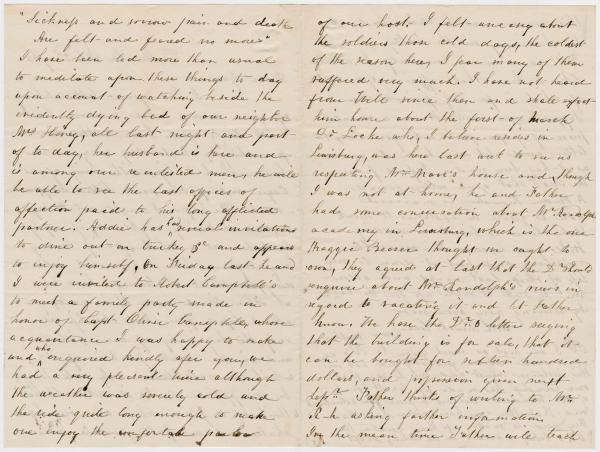 "Sickness and sorrow pain and death
Are felt and feared no more"
I have been led more than usual
to meditate upon these things to day
upon account of watching beside the
evidently dying bed of our neighbor
Mrs Haney, all last night and part
of to day, her husband is here and
is among our reenlisted men, he will
be able to see the last offices of
affection paid to his long afflicted
partner. Addie has had several invitations
to dine out on turkey &c and appears
to enjoy himself, On Friday last he and
I were invited to Robert Campbell's
to meet a family party made in
honor of Capt Oliver whose
acquaintance I was happy to make
and who enquired kindly after you, we
had a very pleasant time although
the weather was severely cold and
the ride quite long enough to make
one enjoy the comfortable parlor
of our host. I felt uneasy about
the soldiers those cold days, the coldest
of the season here, I fear many of them
suffered very much. I have not heard
from Will since then and shall expect
him home about the first of March
Dr Locke who, I believe resides in
Lewisburg, was here last week to see us
respecting Mrs house and though
I was not at home, he and Father
had some conversation about Mr Randolph
academy in Lewisburg, which is the one
Maggie thought we ought to
own, they agreed at last that the Dr should
enquire about Mr Randolph's views in
regard to vacating it and let Father
know. We have the Dr's letter saying
that the building is for sale, that it
can be bought for sixteen hundred
dollars, and possession given next
Sept. Father thinks of writing to Mr
R-h asking farther information
In the mean time Father will teach